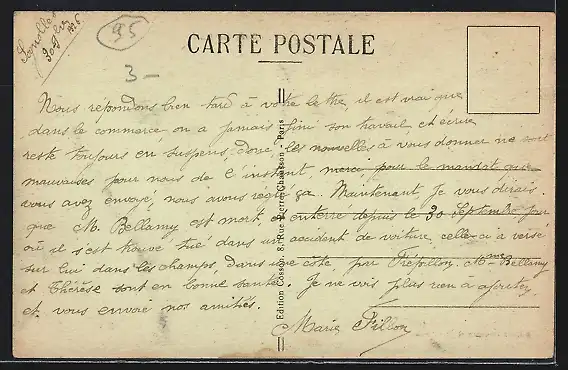 30 9bre 1926
95
CARTE POSTALE
3 —
Nous répondons bien tard à votre lettre, il est vrai que
dans le commerce, on a jamais fini son travail, et écrire
reste toujours en suspens, donc, les nouvelles à vous donner ne sont
mauvaises pour nous de l'instant, merci pour le mandat que
vous avez envoyé, nous avons réglé ça. Maintenant, je vous dirais
que M. Bellamy est mort, et enterré depuis le 30 Septembre, jour
où il s'est trouvé tué dans un accident de voiture, celle-ci a versé
sur lui dans les champs, dans une côte, par Frépillon. Mme Bellamy
et Thérèse sont en bonne santé. Je ne vois plus rien à ajouter,
et vous envoie nos amitiés.
Marie Fillon
Edition Cosson, 8, Rue Pierre Chausson, Paris